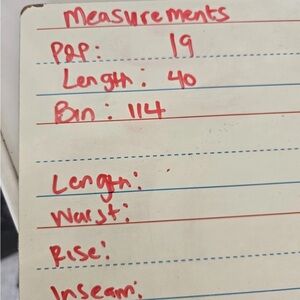 Measurements
P2P: 19
Length: 40
Bin: 114
Length:
Waist:
Rise:
Inseam: